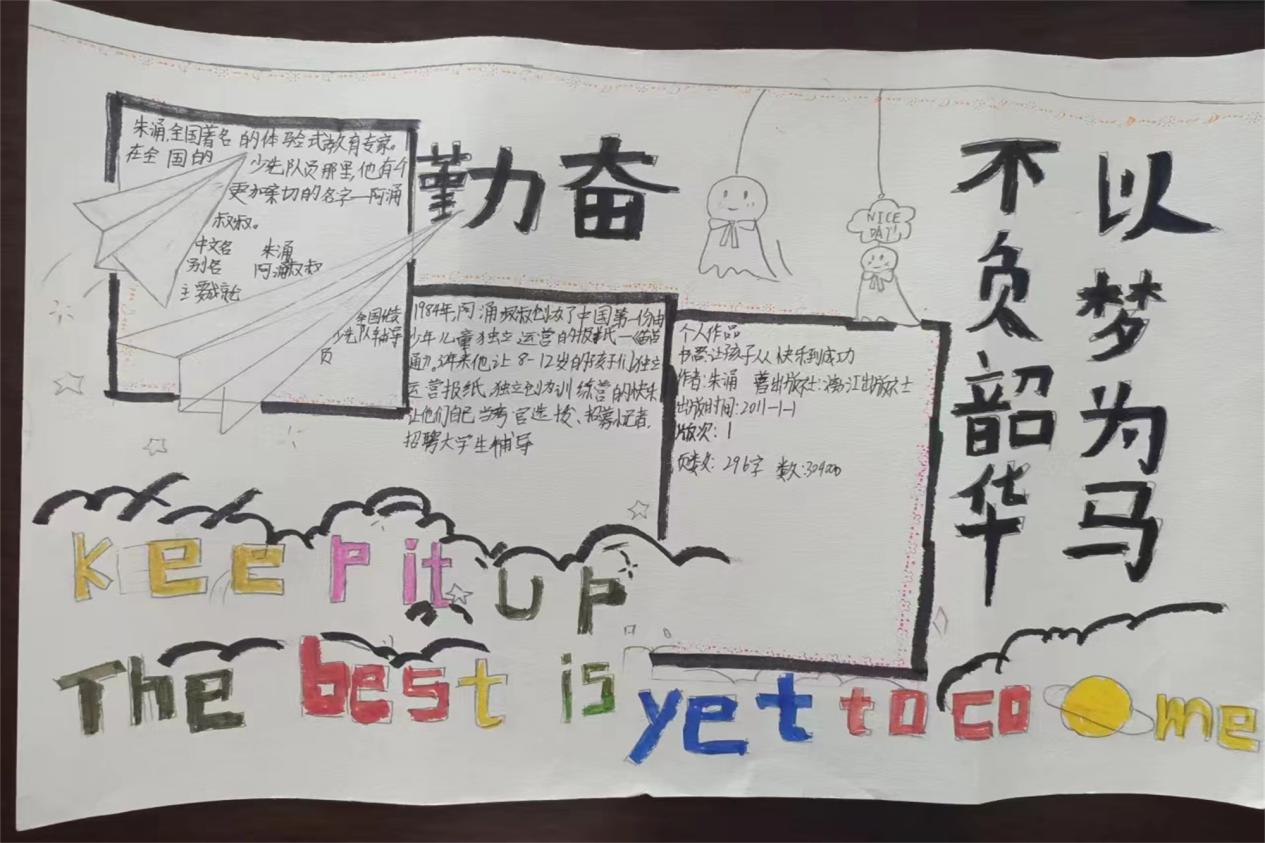 朱涌,全国著名的体验式教育专家。
在全国的少先队员那里,他有个
更加亲切的名字——阿涌
叔叔。
中文名 朱涌
别名 阿涌叔叔
主要成就
全国优秀
少先队辅导
员
勤奋
1984年,阿涌叔叔创办了中国第一份由
少年儿童独立运营的报纸—
通》。来他让8-12岁的孩子们独立
运营报纸、独立创办训练营的快乐
让他们自己当考官选拔、招募小记者,
招聘大学生辅导
NICE
DAY!
个人作品
书名:让孩子从快乐到成功
作者:朱涌 出版社:浙江出版社
出版时间:2011-1-1
版次:1
页数:296字 数:304000
以梦为马
不负韶华
Keep it up
The best is yet to come